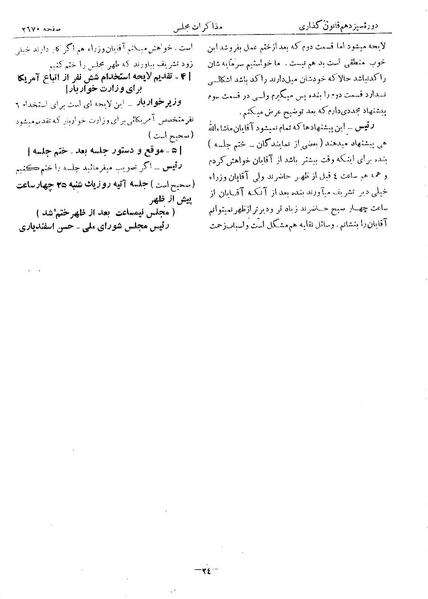 دورهٔ سیزدهم قانون گذاری
مذاکرات مجلس
صفحه ۲۶۷۰
لایحه میشود اما قسمت دوم که بعد از ختم عمل بفروشد این
خوب منطقی است بد هم نیست . ما خواستیم سرمایه شان
را کد نباشد حالا که خودشان میل دارند را کد باشد اشکالی
ندارد قسمت دوم را بنده پس میگیرم ولی در قسمت سوم
پیشنهاد مجددی دارم که عرض میکنم .
رئیس ـ این پیشنهادها که تمام نمیشود آقایان ماشاءالله
هی پیشنهاد میدهند ( بعضی از نمایندگان ـ ختم جلسه )
بنده برای اینکه وقت بیشتر باشد از آقایان خواهش کردم
و همه هم ساعت ٤ قبل از ظهر حاضرند ولی آقایان وزراء
خیلی دیر تشریف میآورند بنده بعد از آنکه آقایان از
ساعت چهار صبح حاضرند زیاد تر و دیرتر از ظهر نمیتوانم
آقایان را بنشانم . وسائل نقلیه هم مشکل است و اسباب زحمت
است . خواهش میکنم آقایان وزراء هم اگر کار دارند خیلی
زود تشریف بیاورند که ظهر مجلس را ختم کنیم
[ ۴ ـ تقدیم لایحه استخدام شش نفر از اتباع آمریکا
برای وزارت خواربار ]
وزیر خواربار ـ این لایحه ای است برای استخدام ٦
نفر متخصص آمریکائی برای وزارت خواربار که تقدیم میشود
( صحیح است )
[ ۵ ـ موقع و دستور جلسه بعد ـ ختم جلسه ]
رئیس ـ اگر تصویب میفرمائید جلسه را ختم کنیم
( صحیح است ) جلسه آتیه روز یک شنبه ۲۵ چهار ساعت
پیش از ظهر
( مجلس نیمساعت بعد از ظهر ختم شد )
رئیس مجلس شورای ملی ـ حسن اسفندیاری
ـ۲٤ـ